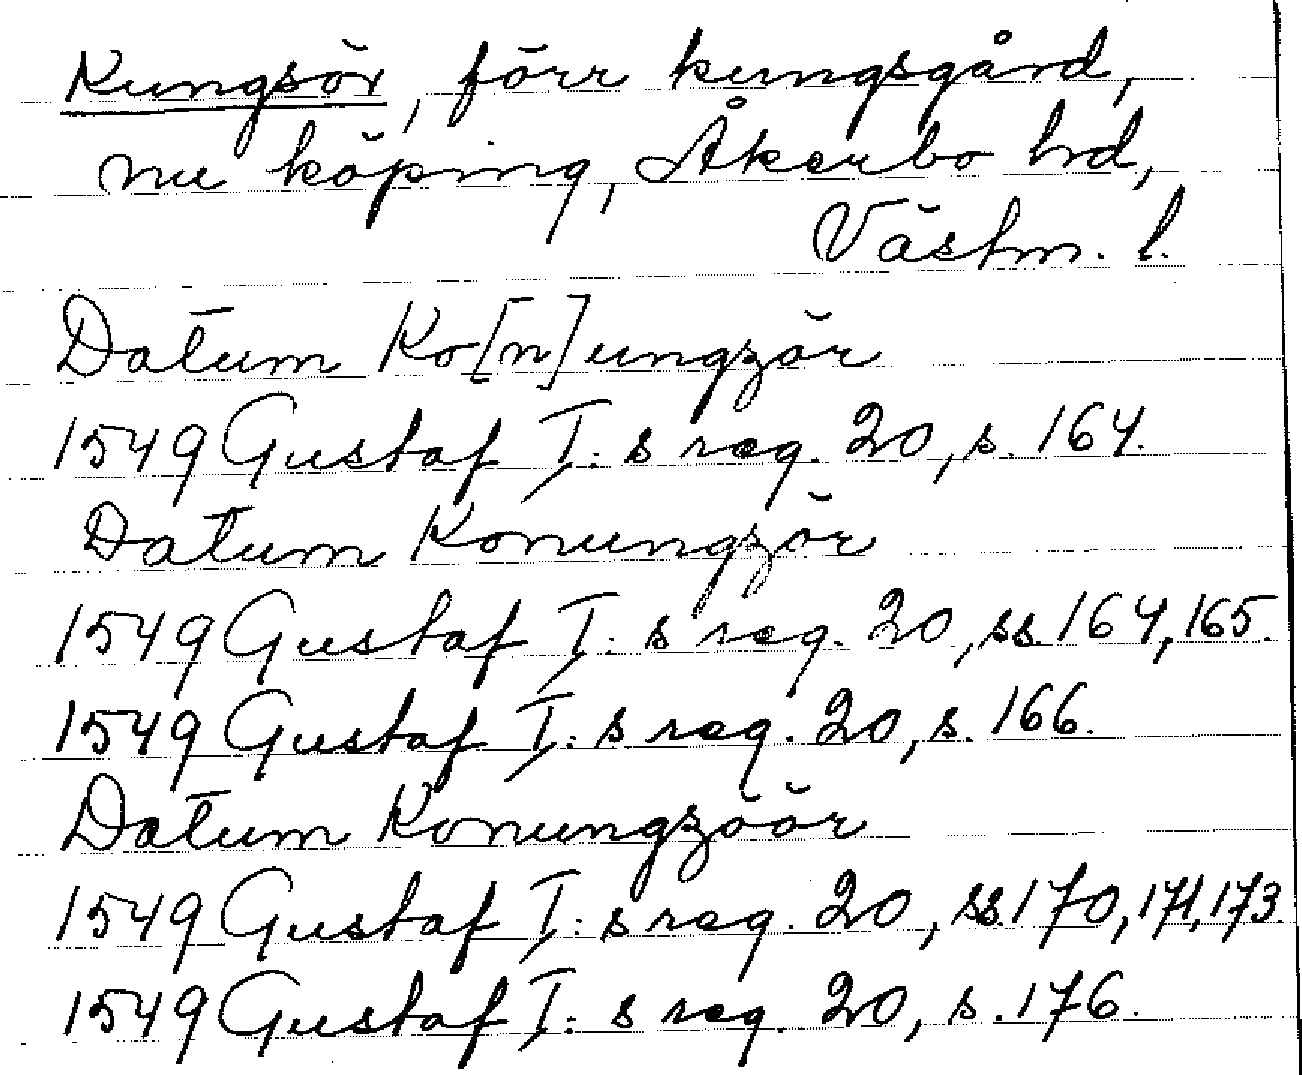 Kungsör, förr kungsgård,
nu köping, Åkerbo hrd,
Västm. l.
Datum Ko[n]ungzör
1549 Gustaf I:s reg. 20, s. 164.
Datum Konungzör
1549 Gustaf I:s reg. 20, ss. 164, 165.
1549 Gustaf I:s reg. 20, s. 166.
Datum Konungzöör
1549 Gustaf I:s reg. 20, ss. 170, 171, 173
1549 Gustaf I:s reg. 20, s. 176.